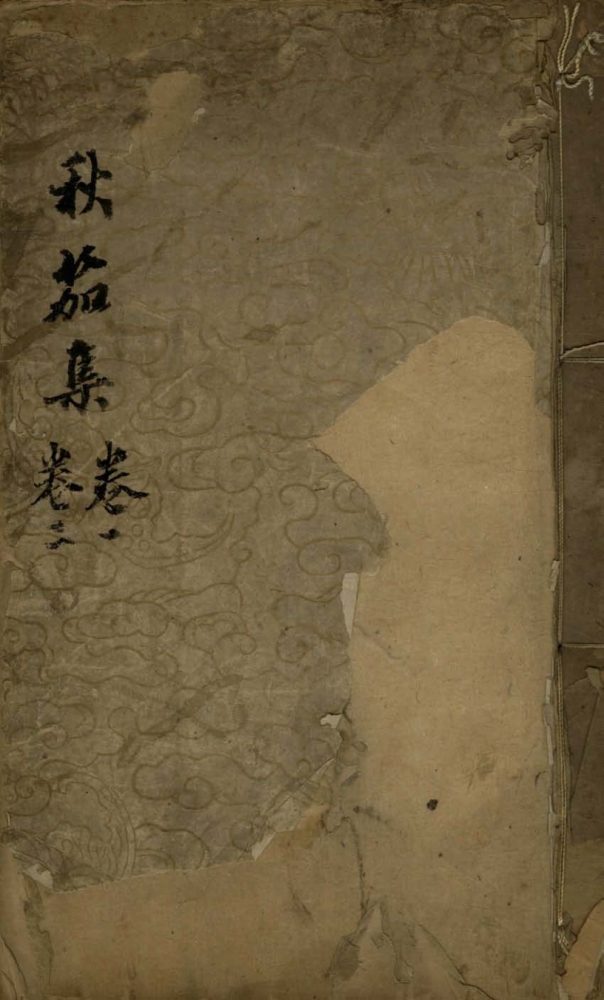 秋茄集
卷一
卷三